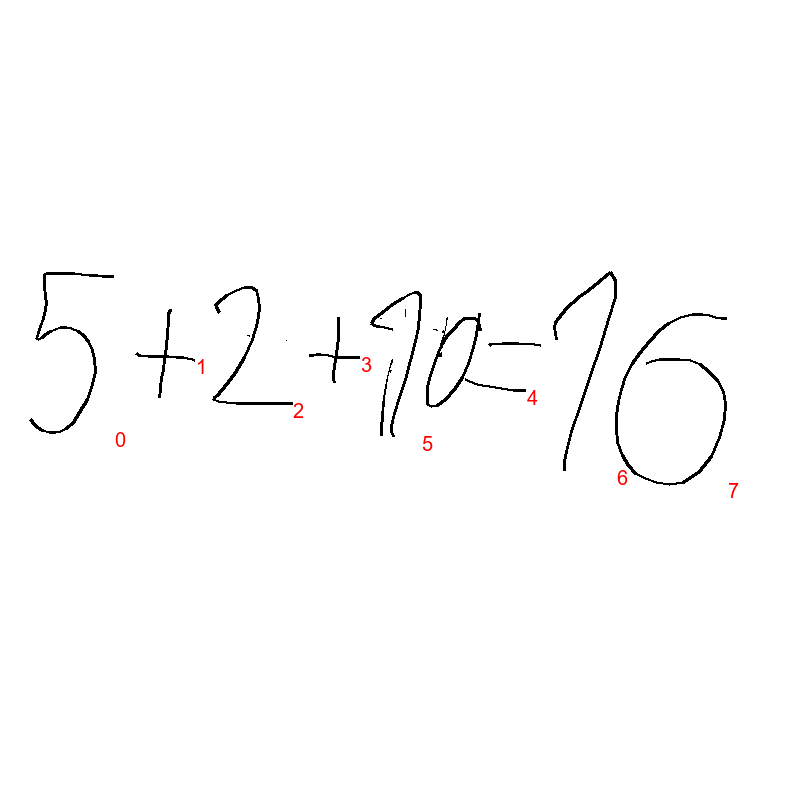 5+2+10=16
0 1 2 3 5 4 6 7